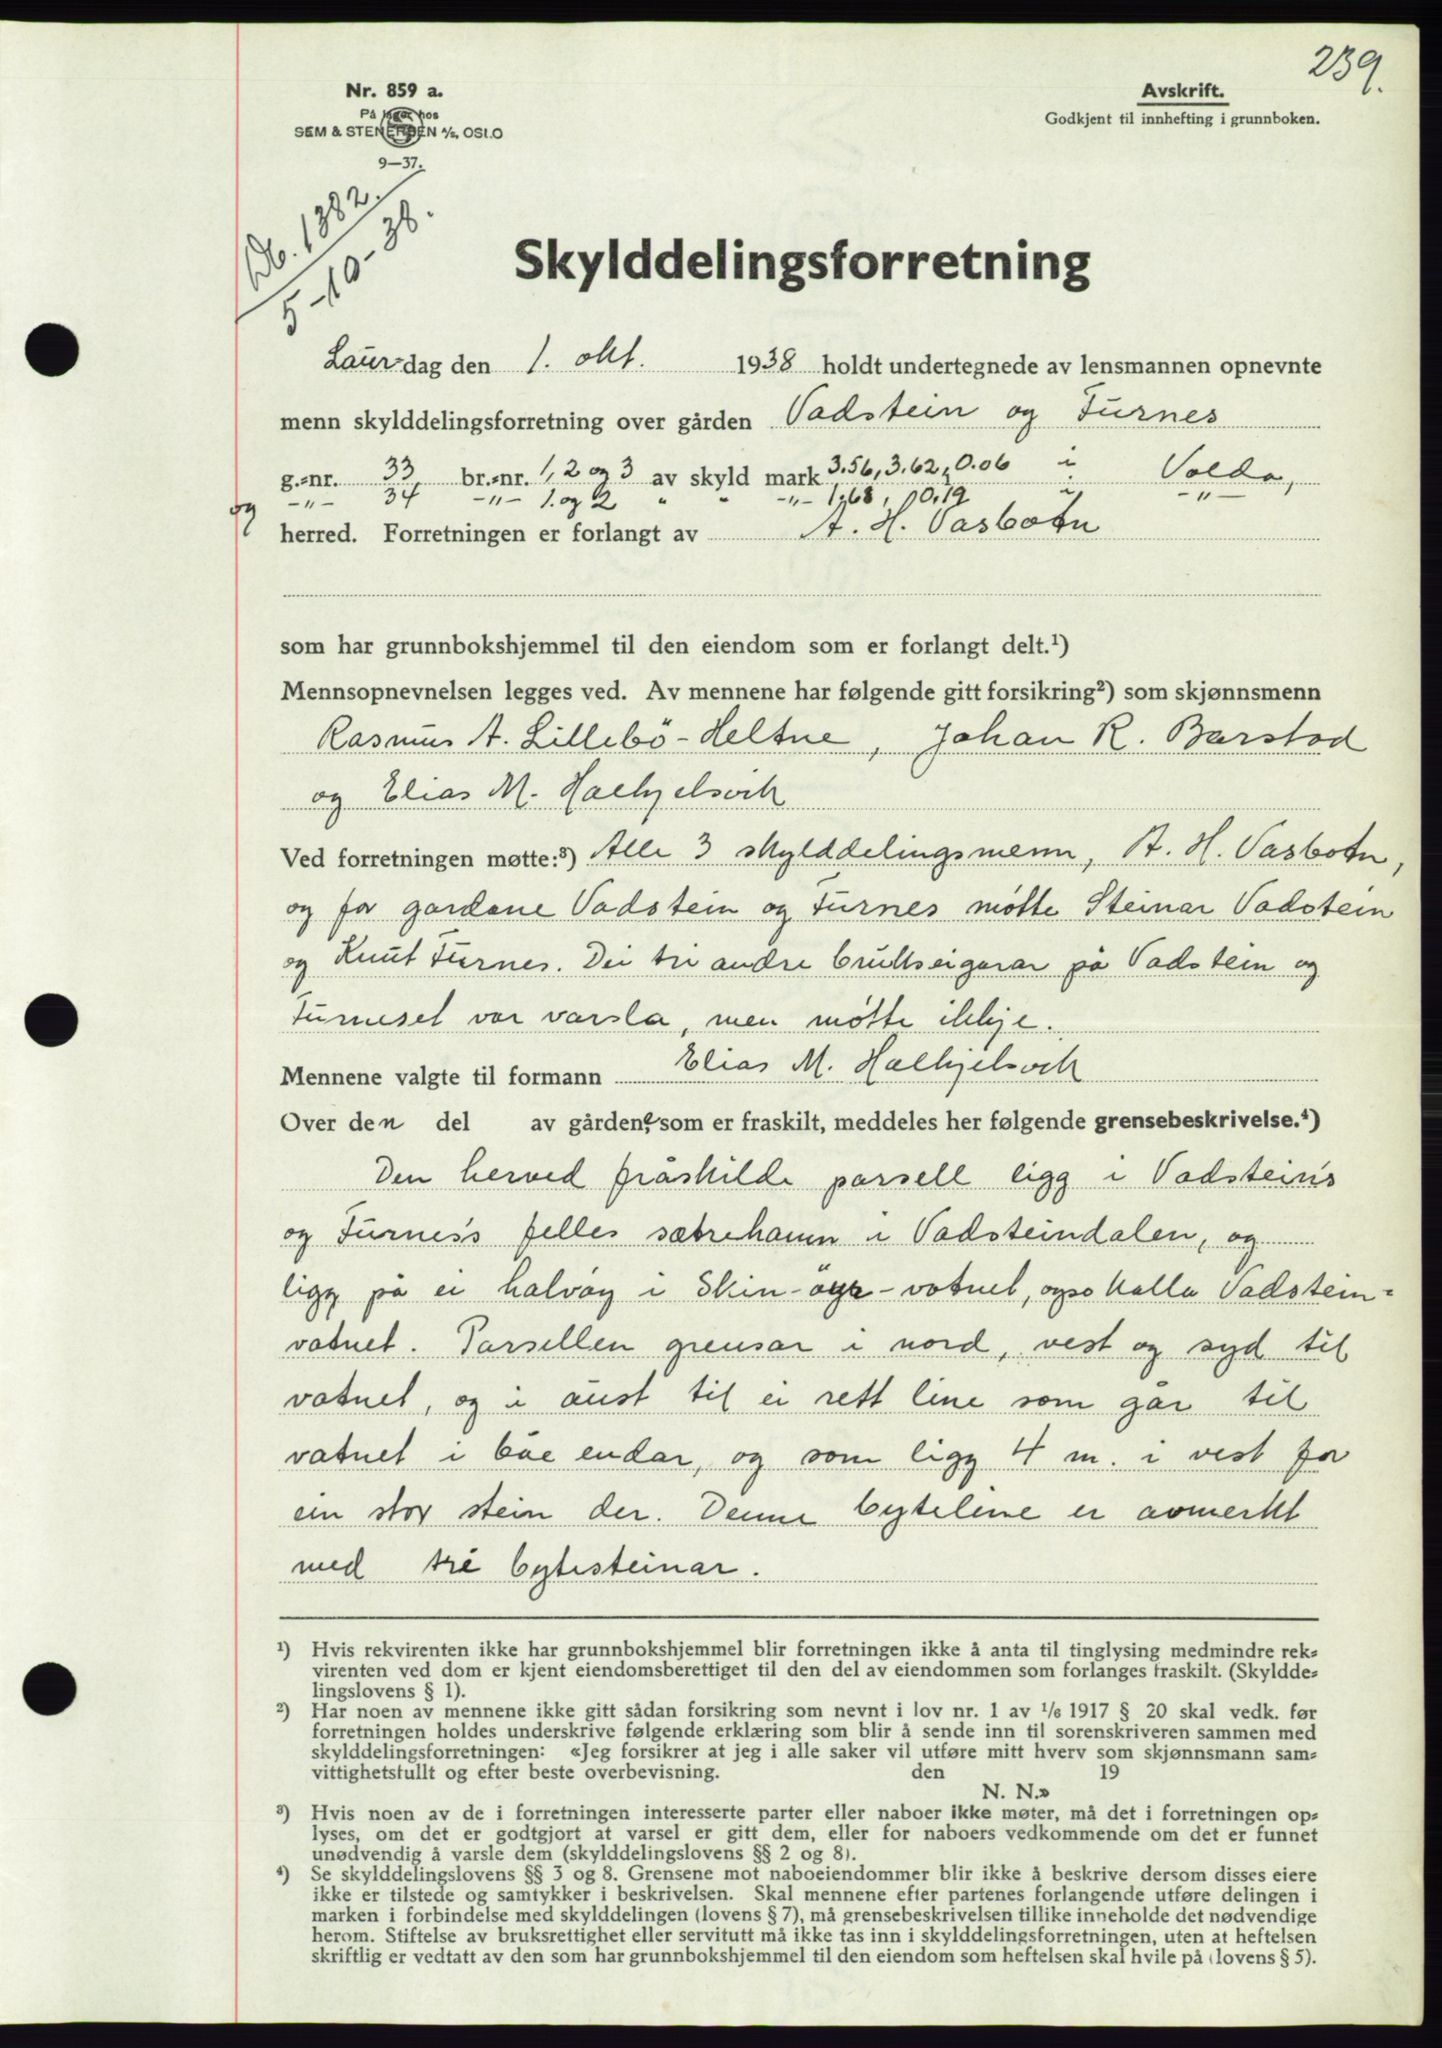 239.
Nr. 859 a.
På lager hos
SEM & STENERSEN A/S, OSLO
9—37.
Avskrift.
Godkjent til innhefting i grunnboken.
Db. 1382.
5-10-38.
Skylddelingsforretning
Laur-dag den 1. okt. 1938 holdt undertegnede av lensmannen opnevnte
menn skylddelingsforretning over gården Vadstein og Furnes
g.-nr. 33 br.-nr. 1, 2 og 3 av skyld mark 3.56, 3.62, 0.06 i Volda,
og -"- 34 -"- 1. og 2 " " -"- 1.68, 0.19 i -"-
herred. Forretningen er forlangt av A. H. Vasbotn
som har grunnbokshjemmel til den eiendom som er forlangt delt.¹)
Mennsopnevnelsen legges ved. Av mennene har følgende gitt forsikring²) som skjønnsmenn
Rasmus A. Lillebö-Heltne, Johan R. Barstad
og Elias M. Halkjelsvik
Ved forretningen møtte:³) Alle 3 skylddelingsmenn, A. H. Vasbotn,
og for gardane Vadstein og Furnes møtte Steinar Vadstein
og Knut Furnes. Dei tri andre brukseigarar på Vadstein og
Furneset var varsla, men møtte ikkje.
Mennene valgte til formann Elias M. Halkjelsvik
Over den del av gårdene som er fraskilt, meddeles her følgende grensebeskrivelse.⁴)
Den herved fråskilde parsell ligg i Vadstein's
og Furnes's felles sætrehamn i Vadsteindalen, og
ligg på ei halvöy i Skin-öyr-vatnet, også kalla Vadstein-
vatnet. Parsellen grensar i nord, vest og syd til
vatnet, og i aust til ei rett line som går til
vatnet i båe endar, og som ligg 4 m. i vest for
ein stor stein der. Denne byteline er avmerkt
med tri bytesteinar.
¹) Hvis rekvirenten ikke har grunnbokshjemmel blir forretningen ikke å anta til tinglysing medmindre rek-
virenten ved dom er kjent eiendomsberettiget til den del av eiendommen som forlanges fraskilt. (Skyldde-
lingslovens § 1).
²) Har noen av mennene ikke gitt sådan forsikring som nevnt i lov nr. 1 av 1/6 1917 § 20 skal vedk. før
forretningen holdes underskrive følgende erklæring som blir å sende inn til sorenskriveren sammen med
skylddelingsforretningen: «Jeg forsikrer at jeg i alle saker vil utføre mitt hverv som skjønnsmann sam-
vittighetsfullt og efter beste overbevisning. den 19
N. N.»
³) Hvis noen av de i forretningen interesserte parter eller naboer ikke møter, må det i forretningen op-
lyses, om det er godtgjort at varsel er gitt dem, eller for naboers vedkommende om det er funnet
unødvendig å varsle dem (skylddelingslovens §§ 2 og 8).
⁴) Se skylddelingslovens §§ 3 og 8. Grensene mot naboeiendommer blir ikke å beskrive dersom disses eiere
ikke er tilstede og samtykker i beskrivelsen. Skal mennene efter partenes forlangende utføre delingen i
marken i forbindelse med skylddelingen (lovens § 7), må grensebeskrivelsen tillike inneholde det nødvendige
herom. Stiftelse av bruksrettighet eller servitutt må ikke tas inn i skylddelingsforretningen, uten at heftelsen
skriftlig er vedtatt av den som har grunnbokshjemmel til den eiendom som heftelsen skal hvile på (lovens § 5).